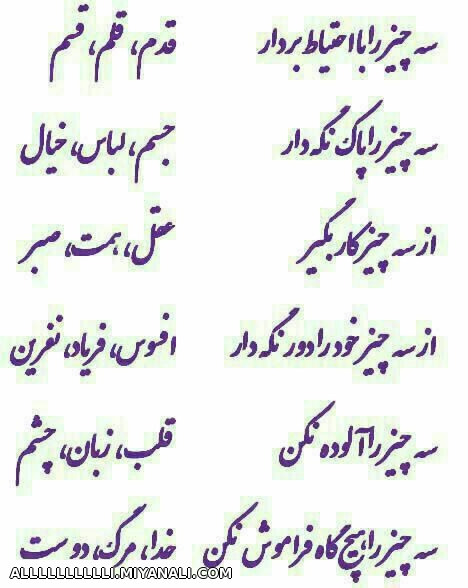 سه چیز را با احتیاط بردار قدم، قلم، قسم
سه چیز را پاک نگه دار جسم، لباس، خیال
از سه چیز کار بگیر عقل، همت، صبر
از سه چیز خود را دور نگه دار افسوس، فریاد، نفرین
سه چیز را آلوده نکن قلب، زبان، چشم
سه چیز را هیچ گاه فراموش نکن خدا، مرگ، دوست
ALLLLLLLLLLI.MIYANALI.COM